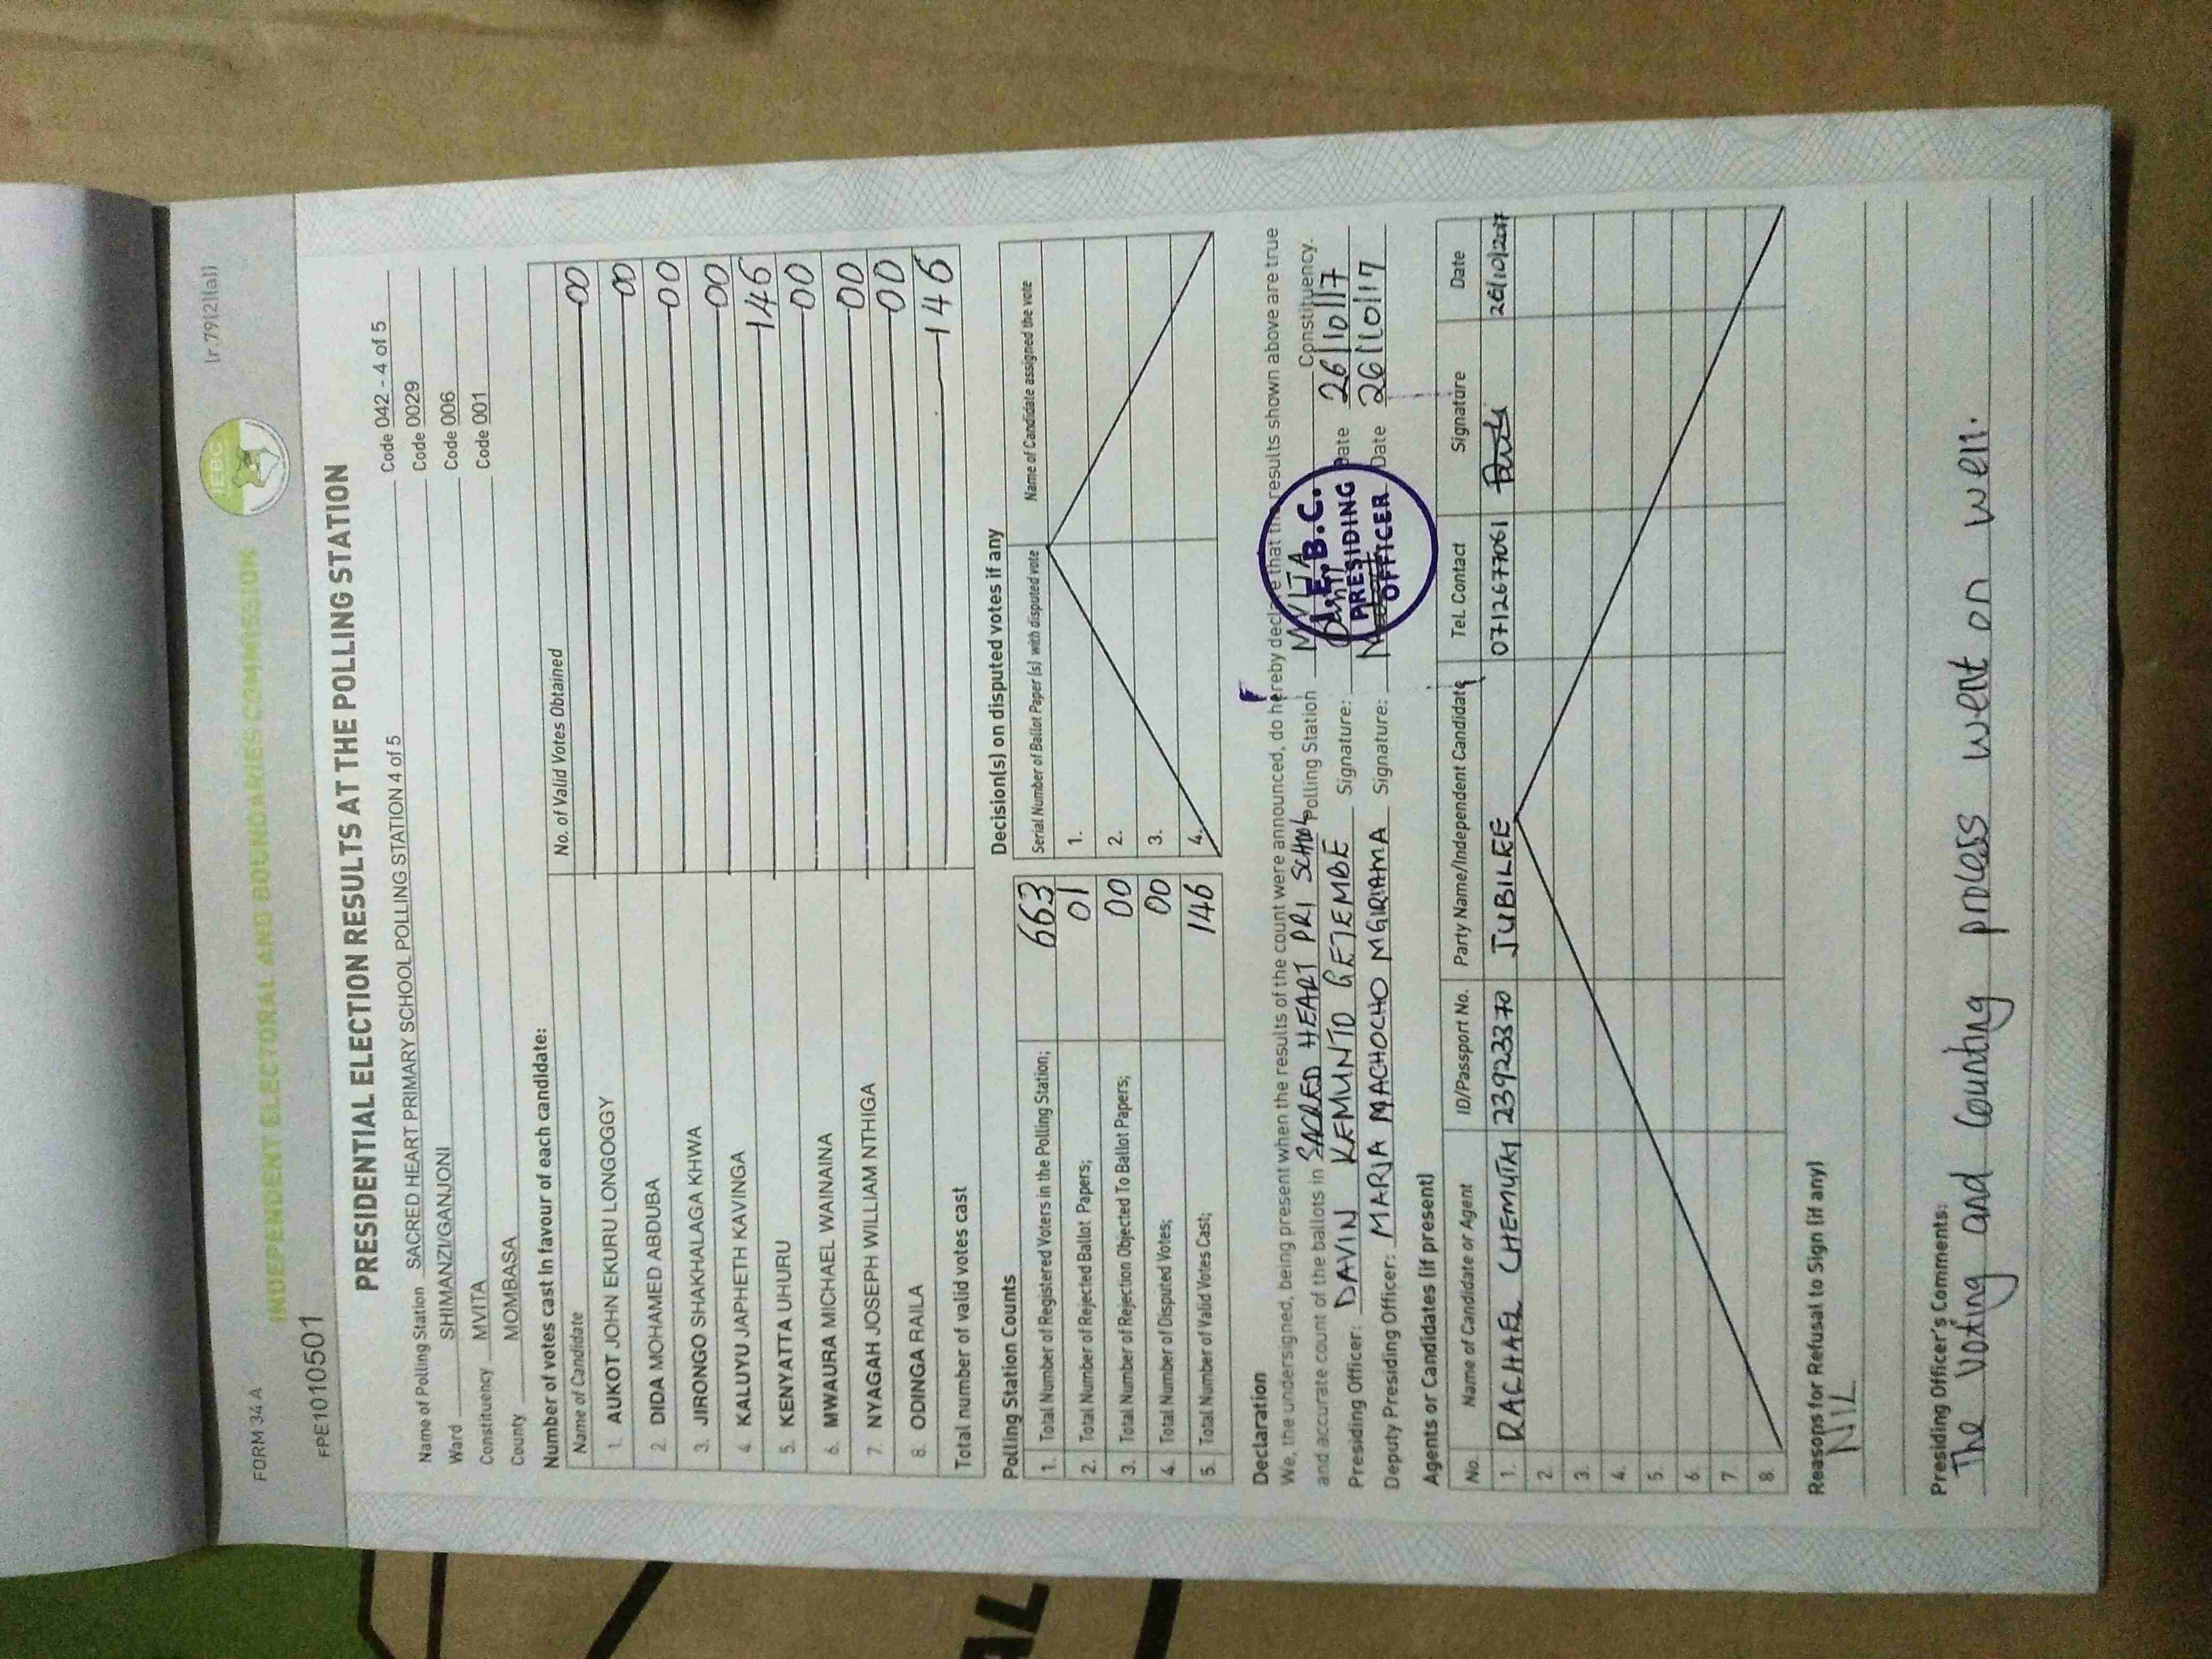 FORM 34 A
(r.79(2)(a))
INDEPENDENT ELECTORAL AND BOUNDARIES COMMISSION
IEBC
FPE1010501
PRESIDENTIAL ELECTION RESULTS AT THE POLLING STATION
Name of Polling Station SACRED HEART PRIMARY SCHOOL POLLING STATION 4 of 5 Code 042 - 4 of 5
Ward SHIMANZI/GANJONI Code 0029
Constituency MVITA Code 006
County MOMBASA Code 001
Number of votes cast in favour of each candidate:
Name of Candidate No. of Valid Votes Obtained
1. AUKOT JOHN EKURU LONGOGGY 00
2. DIDA MOHAMED ABDUBA 00
3. JIRONGO SHAKHALAGA KHWA 00
4. KALUYU JAPHETH KAVINGA 00
5. KENYATTA UHURU 146
6. MWAURA MICHAEL WAINAINA 00
7. NYAGAH JOSEPH WILLIAM NTHIGA 00
8. ODINGA RAILA 00
Total number of valid votes cast 146
Polling Station Counts
1. Total Number of Registered Voters in the Polling Station; 663
2. Total Number of Rejected Ballot Papers; 01
3. Total Number of Rejection Objected To Ballot Papers; 00
4. Total Number of Disputed Votes; 00
5. Total Number of Valid Votes Cast; 146
Decision(s) on disputed votes if any
Serial Number of Ballot Paper (s) with disputed vote Name of Candidate assigned the vote
1.
2.
3.
4.
Declaration
We, the undersigned, being present when the results of the count were announced, do hereby declare that the results shown above are true
and accurate count of the ballots in SACRED HEART PRI SCHOOL Polling Station MVITA Constituency.
Presiding Officer: DAVIN KEMUNTO GETEMBE Signature: Date 26/10/17
Deputy Presiding Officer: MARIA MACHOCHO MGIRIAMA Signature: Date 26/10/17
I.E.B.C.
PRESIDING
OFFICER
Agents or Candidates (if present)
No. Name of Candidate or Agent ID/Passport No. Party Name/Independent Candidate Tel. Contact Signature Date
1. RACHAEL CHEMUTAI 23923370 JUBILEE 0712677061 26/10/2017
2.
3.
4.
5.
6.
7.
8.
Reasons for Refusal to Sign (if any)
NIL
Presiding Officer's Comments:
The voting and counting process went on well.
AL